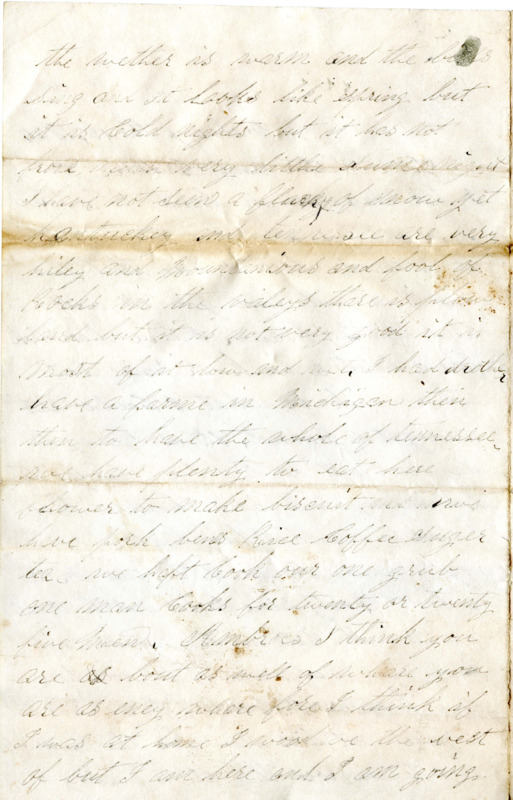 the wether is warm and the
sing and it looks like spring but
it is Cold nights but it has not
froze very little some nights
I have not seen a flurry of snow yet
Kentuckey and tennessee are very
hiley and Mountainious and fool of
Rocks in the valeys there is plow
land but it is not very good it is
most of it low and wet I had
have a farme in Michigan then
then to have the whole of tennessee
we have plenty to eat here
flower to make biscuit
have pork bens Rice Coffee suger
tea we kept Cook our one grub
one man Cooks for twenty or twenty
five men. I think you
are as bout as well of whare you
are as eney where fore I think if
I was at home I the west
of but I am here and I am going